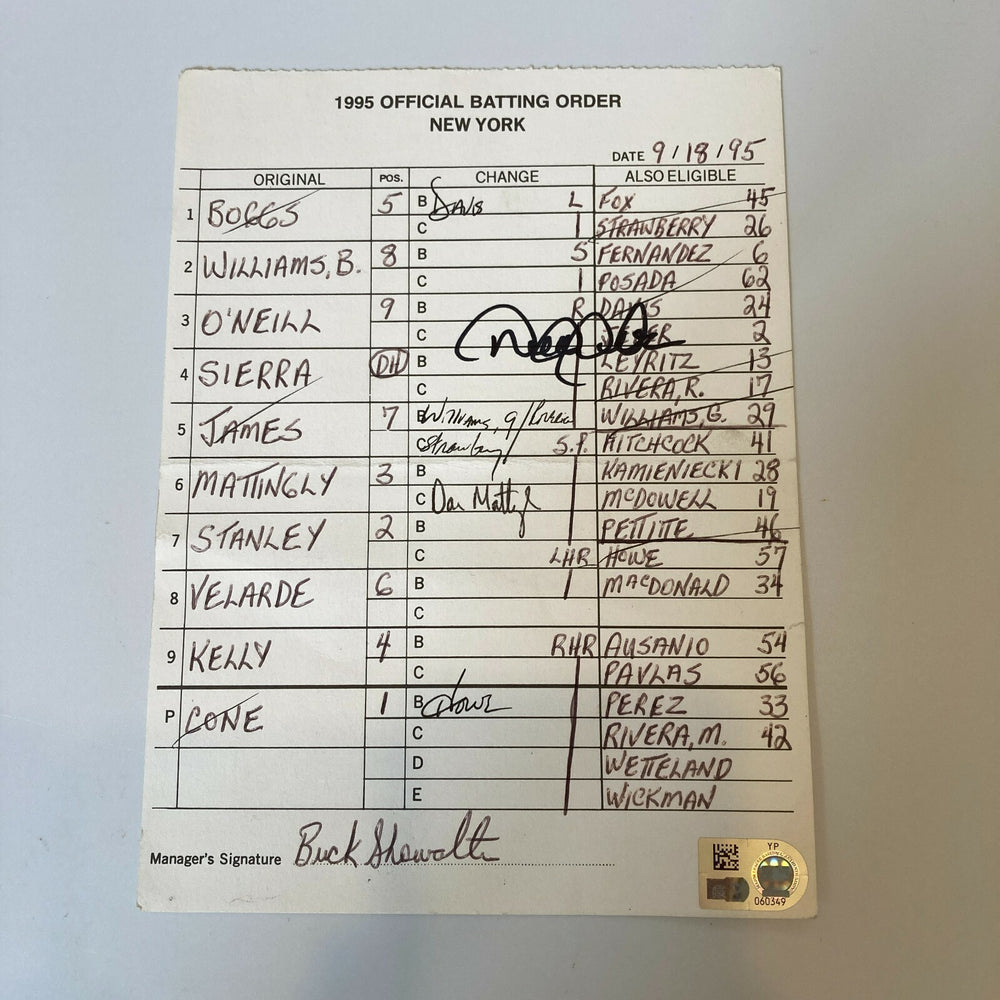 1995 OFFICIAL BATTING ORDER
NEW YORK
DATE 9/18/95
ORIGINAL POS. CHANGE ALSO ELIGIBLE
1 BOGGS 5 B DAVIS L FOX 45
C STRAWBERRY 26
2 WILLIAMS, B. 8 B S FERNANDEZ 6
C POSADA 62
3 O'NEILL 9 B R DAVIS 24
C JETER 2
4 SIERRA DH B LEYRITZ 13
C RIVERA, R. 17
5 JAMES 7 B Williams, G/Rivera WILLIAMS, G. 29
C Strawberry S.P. HITCHCOCK 41
6 MATTINGLY 3 B KAMIENIECKI 28
C Don Mattingly MCDOWELL 19
7 STANLEY 2 B PETTITE 46
C LHR HOWE 57
8 VELARDE 6 B MACDONALD 34
C
9 KELLY 4 B RHR AUSANIO 54
C PAVLAS 56
P CONE 1 B Howe PEREZ 33
C RIVERA, M. 42
D WETTELAND
E WICKMAN
Manager's Signature Buck Showalter
YP
060349